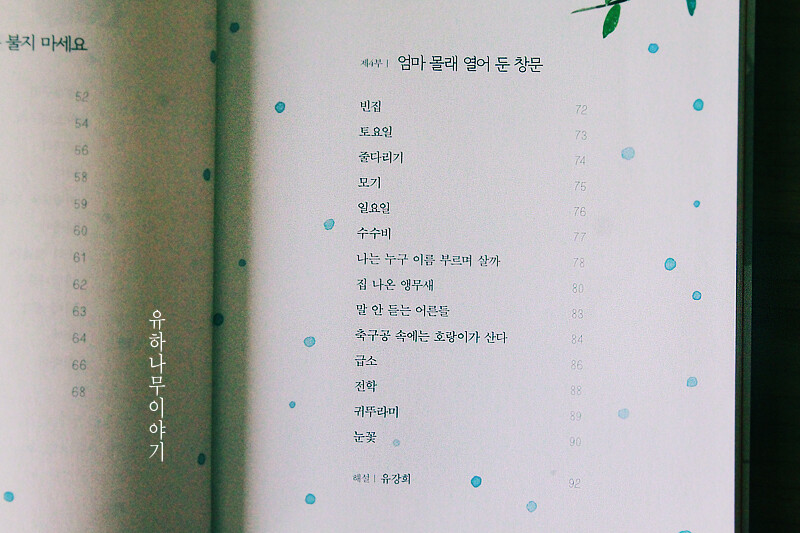 불지 마세요
52
54
56
58
59
60
61
62
63
64
66
68
유하나무이야기
제4부 | 엄마 몰래 열어 둔 창문
빈집 72
토요일 73
줄다리기 74
모기 75
일요일 76
수수비 77
나는 누구 이름 부르며 살까 78
집 나온 앵무새 80
말 안 듣는 어른들 83
축구공 속에는 호랑이가 산다 84
급소 86
전학 88
귀뚜라미 89
눈꽃 90
해설 | 유강희 92